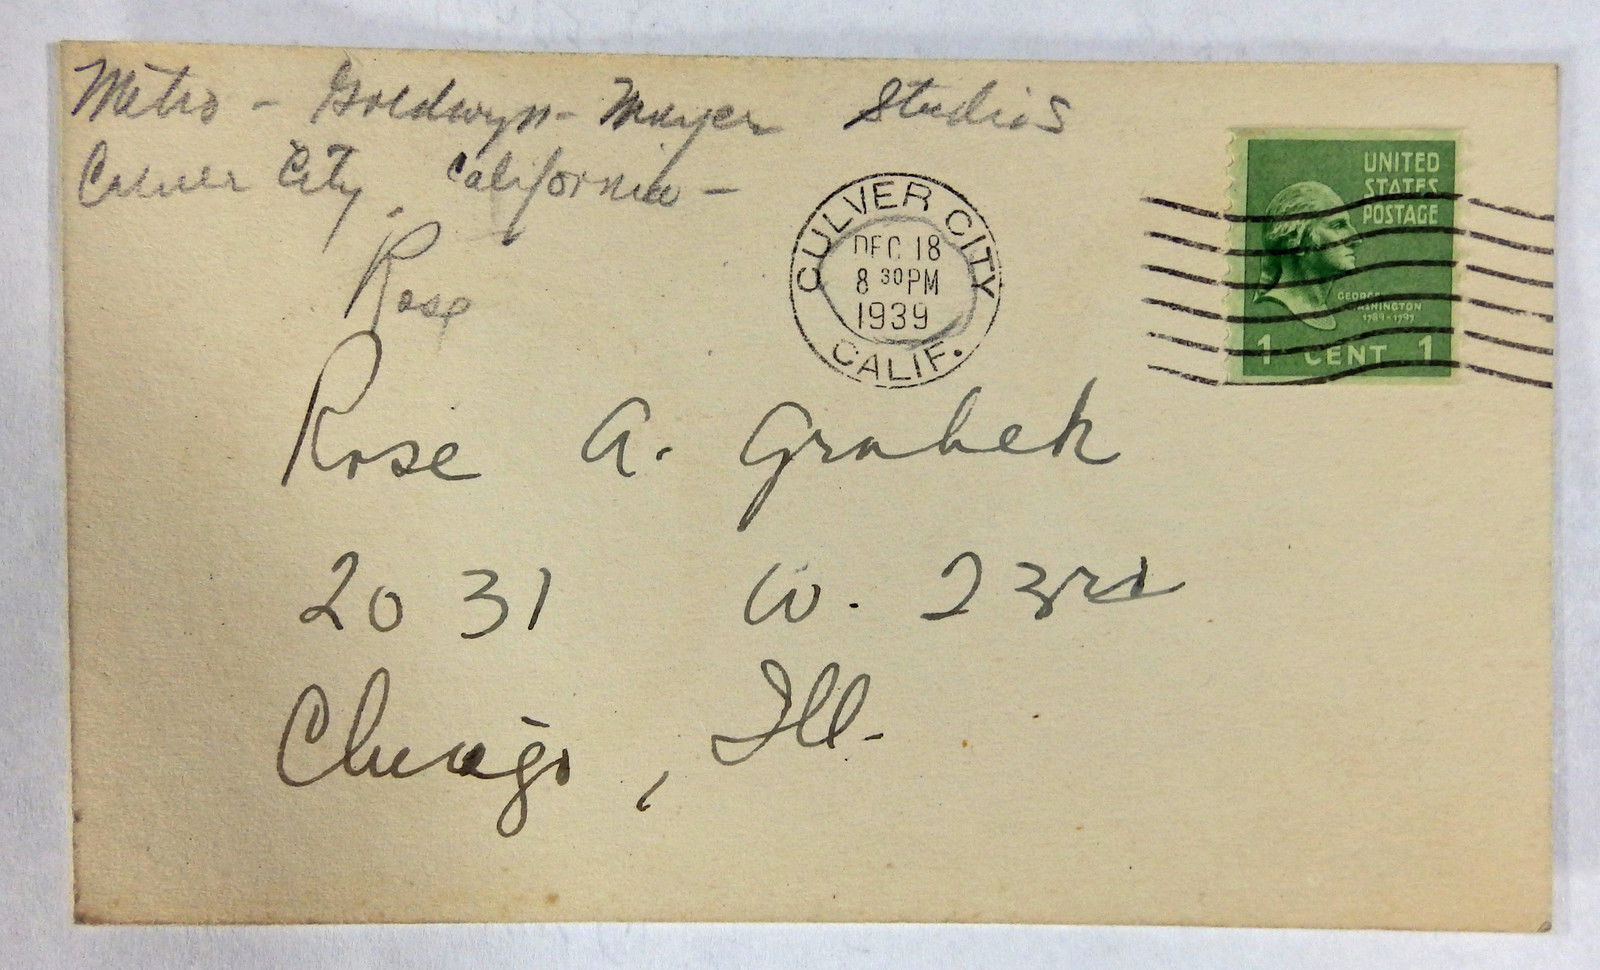 Metro - Goldwyn - Mayer Studios
Culver City, California -
Rose
CULVER CITY
DEC 18
8 30 PM
1939
CALIF.
UNITED
STATES
POSTAGE
GEORGE
WASHINGTON
1789-1797
1 CENT 1
Rose A. Grabek
2031 W. 23rd
Chicago, Ill.